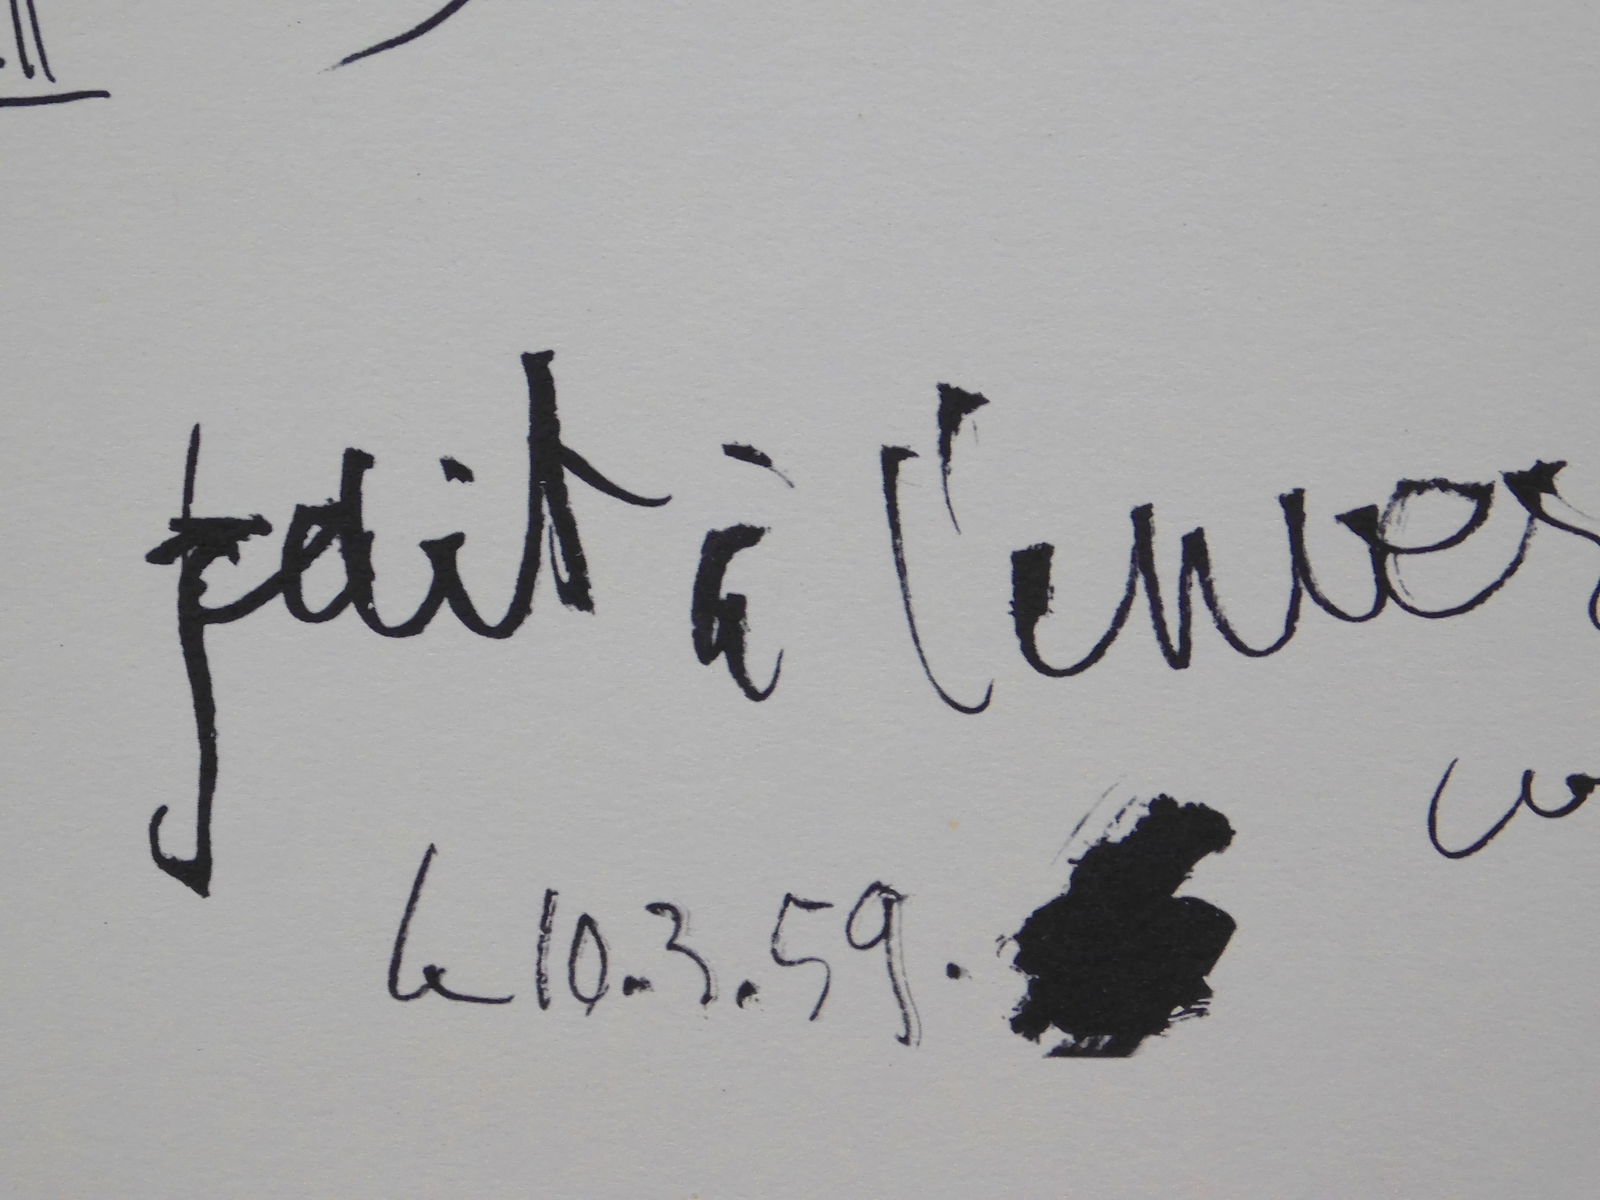 fait à l'envers
le 10.3.59.